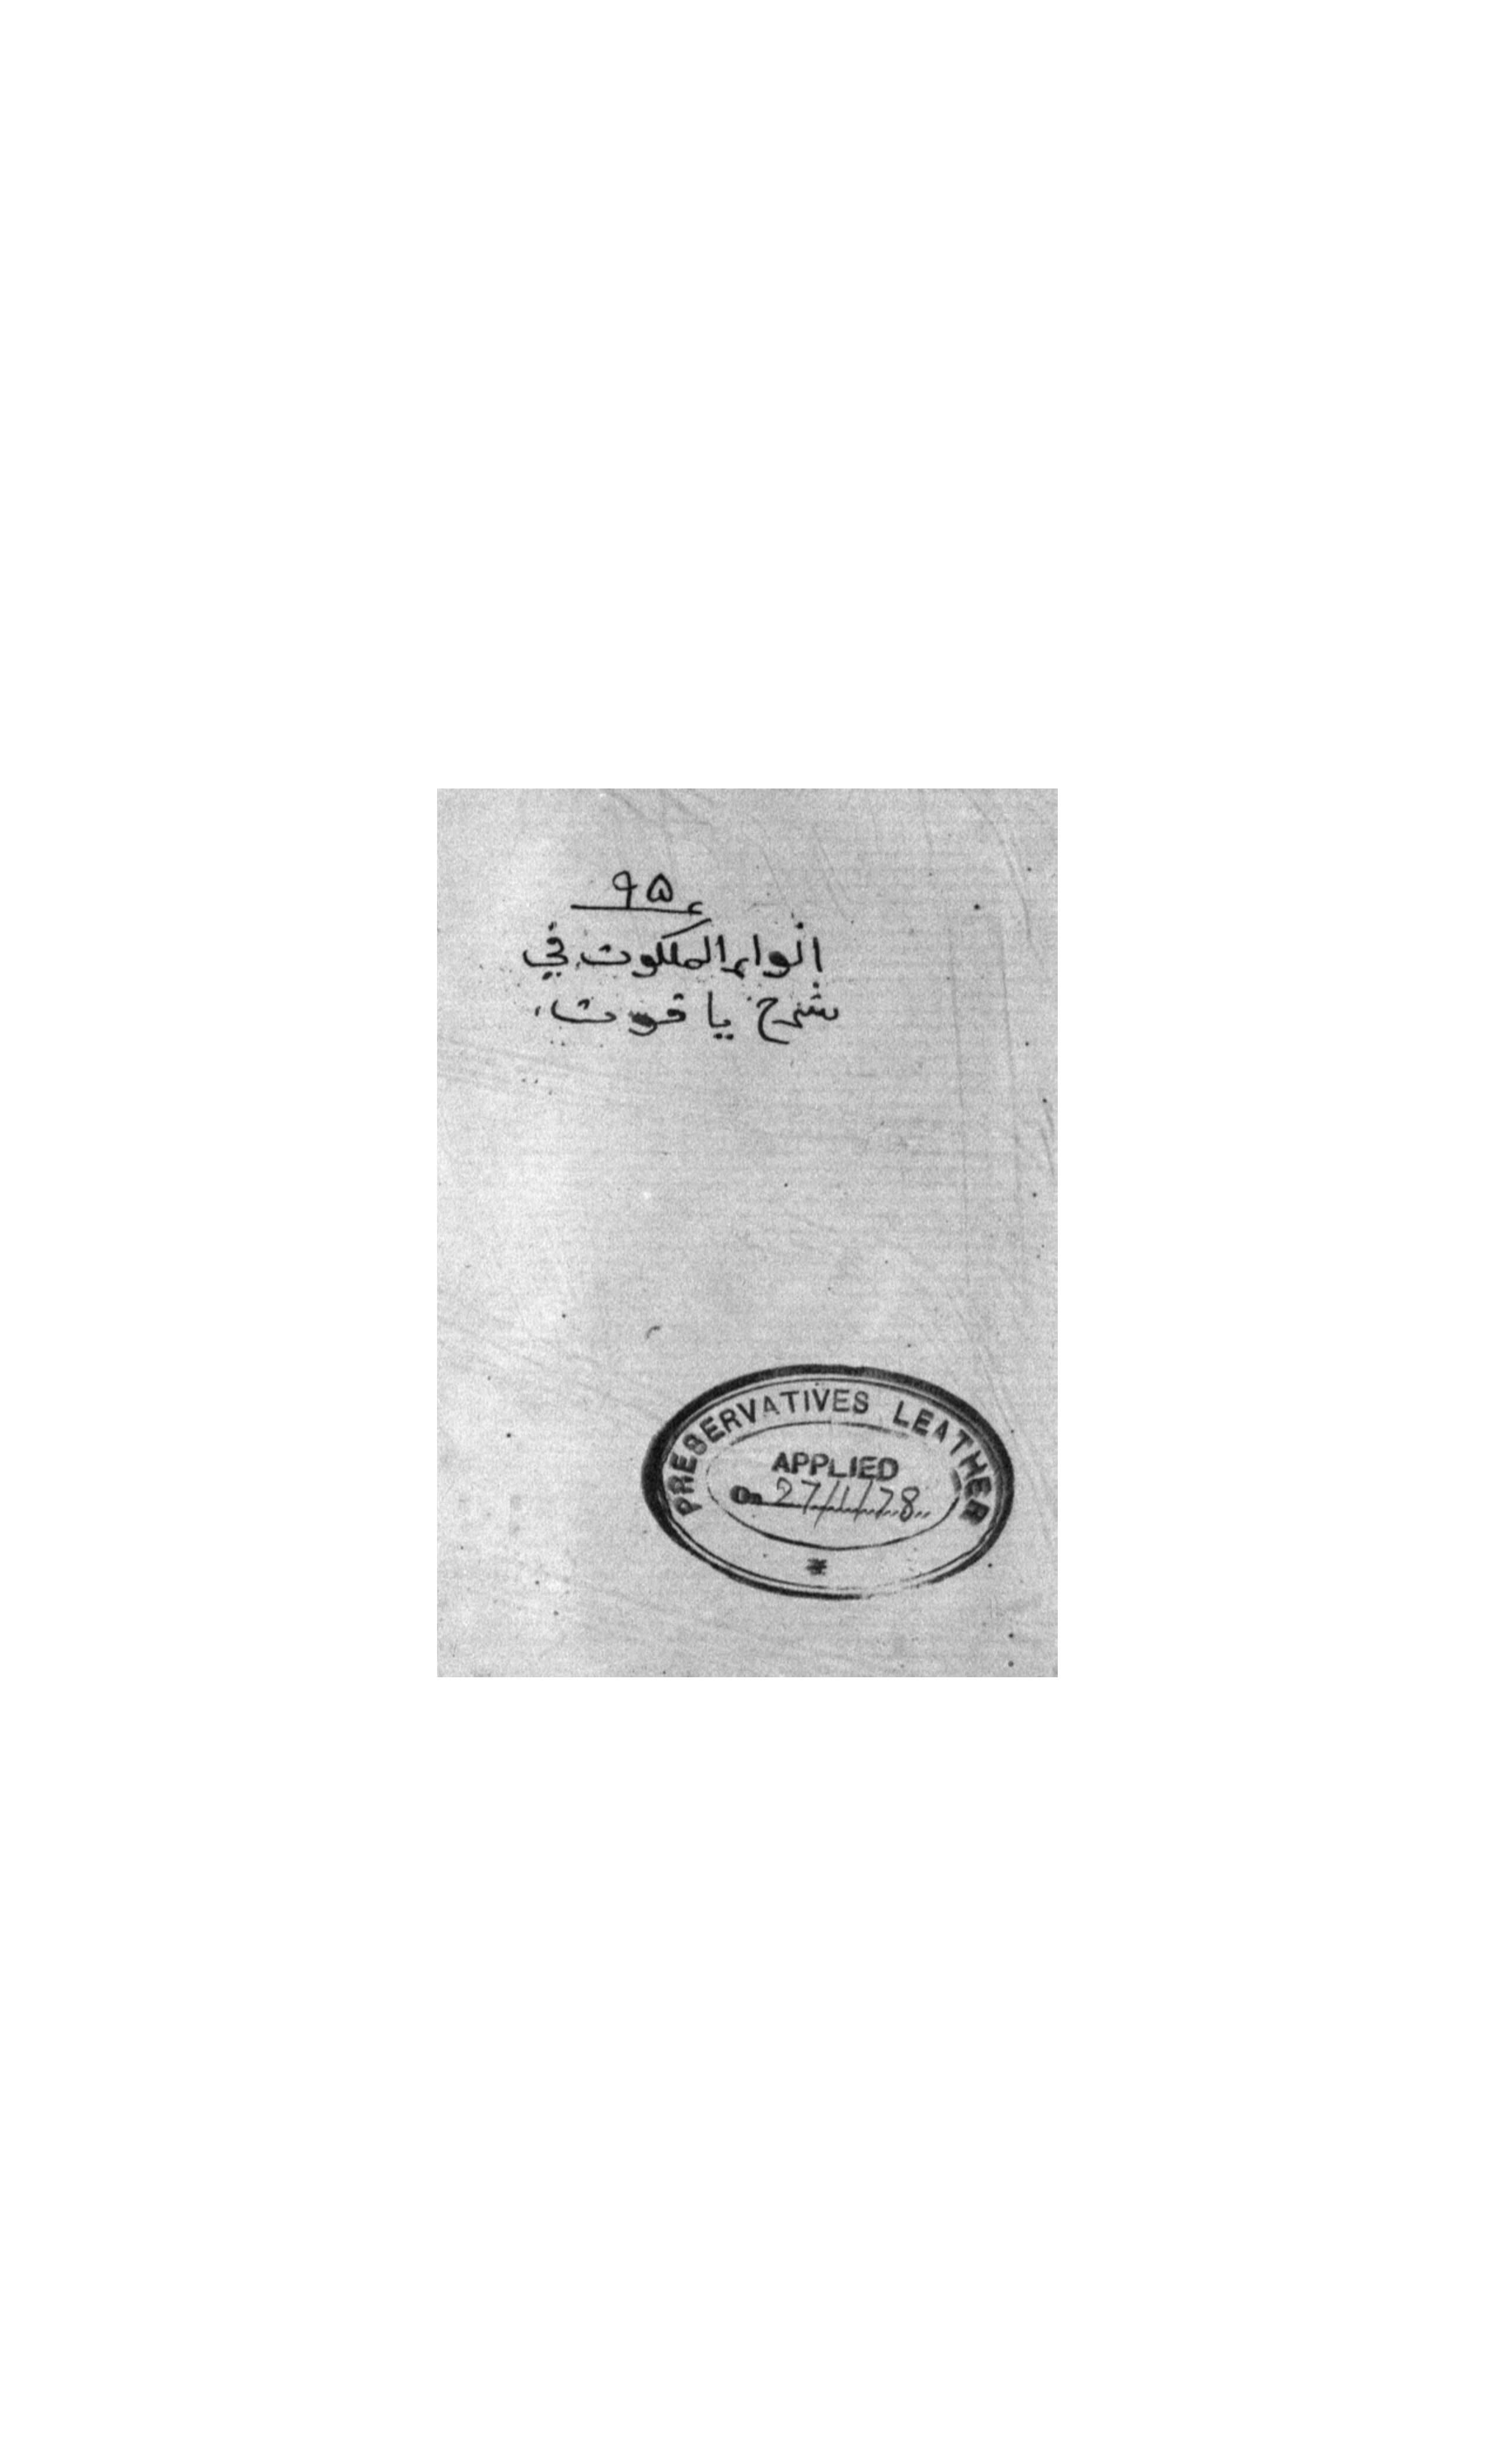 ۹۵
انوار الملكوت في
شرح ياقوت
PRESERVATIVES LEATHER
APPLIED
On 27/1/78